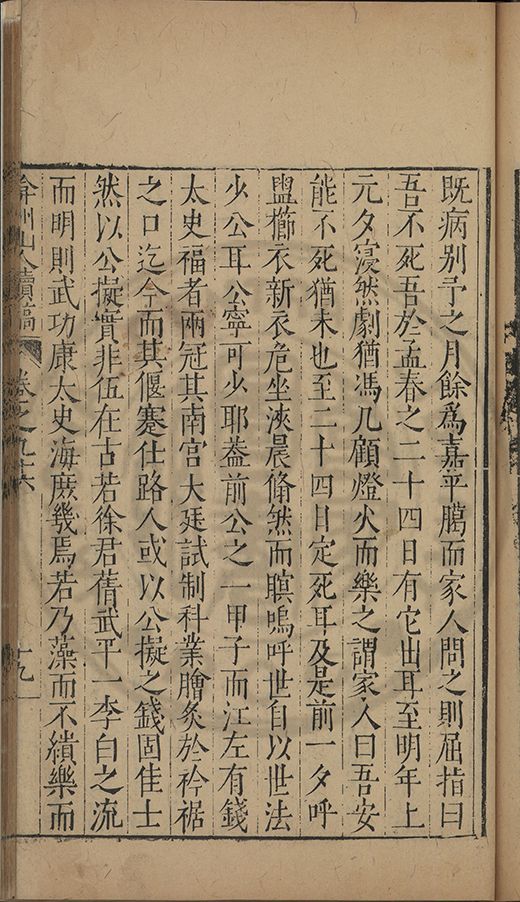 既病別予之月餘爲嘉平臈而家人問之則屈指曰
吾不死吾於孟春之二十四日有它出耳至明年上
元夕寖然劇猶馮几顧燈火而樂之謂家人曰吾安
能不死猶未也至二十四日定死耳及是前一夕呼
盥櫛衣新衣危坐浹晨翛然而瞑嗚呼世自以世法
少公耳公寧可少耶葢前公之一甲子而江左有錢
太史福者兩冠其南宫大廷試制科業膾炙於衿裾
之口迄今而其偃蹇仕路人或以公擬之錢固佳士
然以公擬實非伍在古若徐君蒨武平一李白之流
而明則武功康太史海厥幾焉若乃藻而不繢樂而
弇州山人續稿 卷之九十六 十九